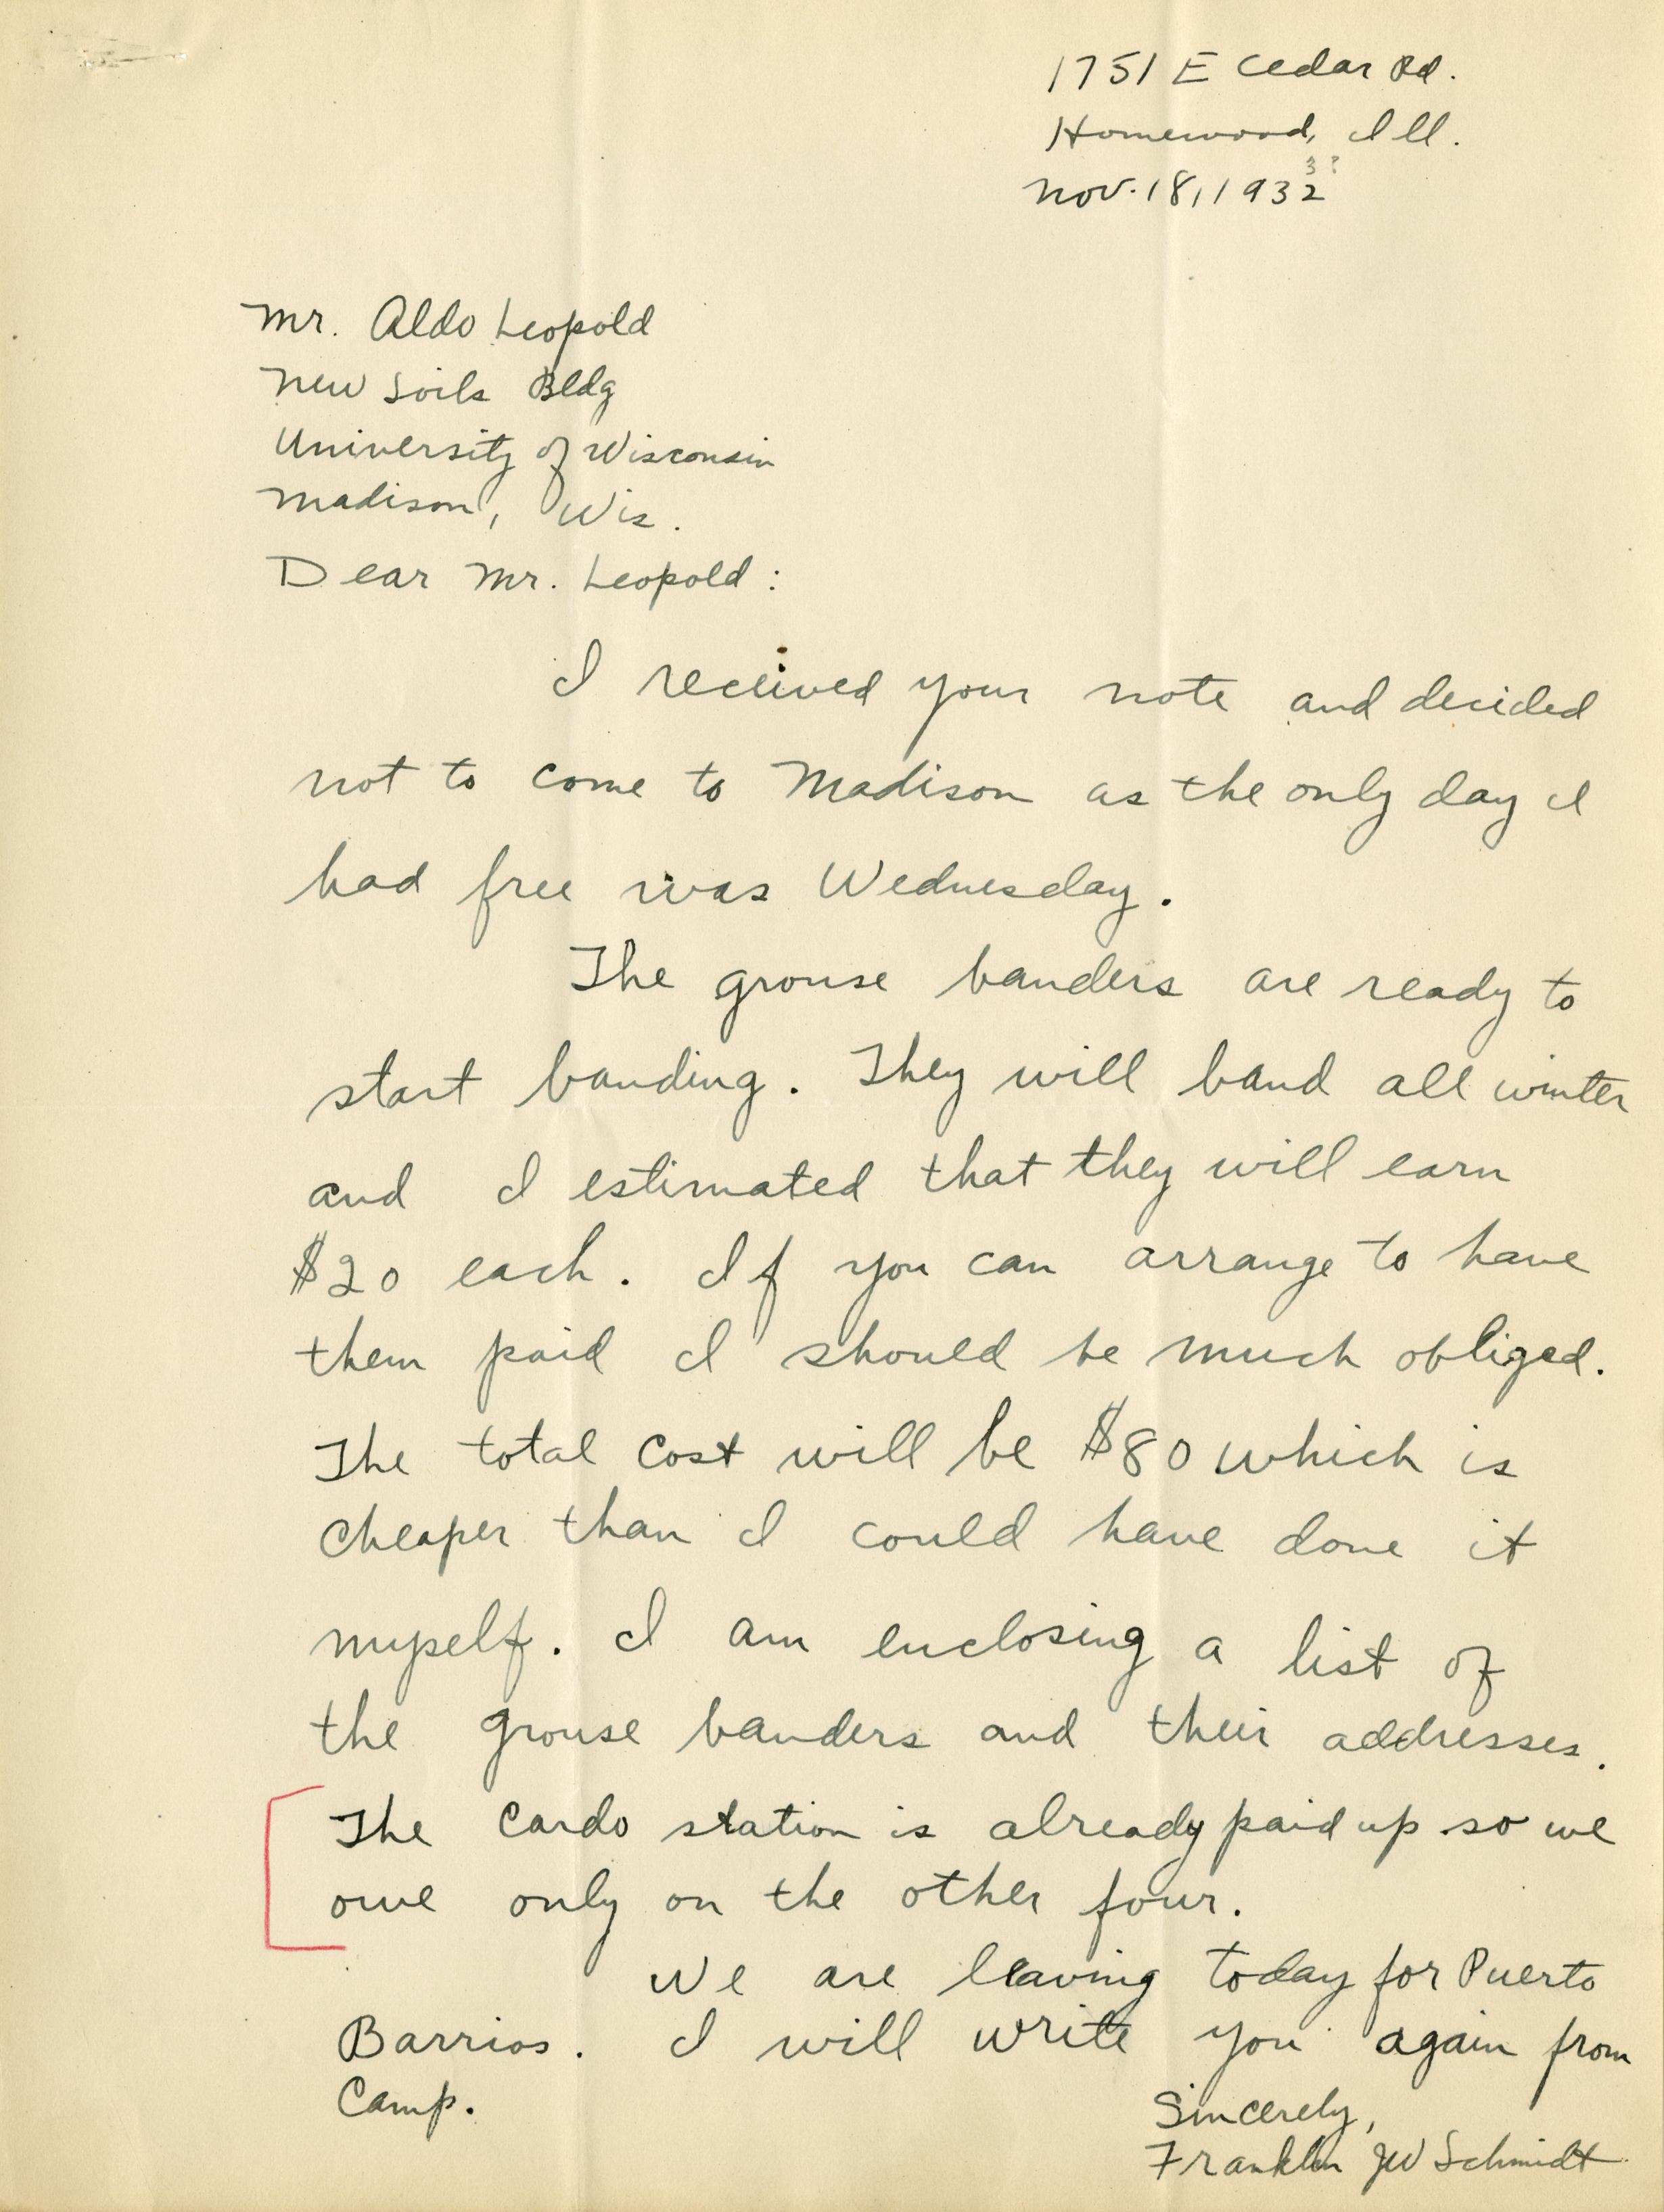 1751 E Cedar Rd.
Homewood, Ill.
3?
Nov. 18, 1932
Mr. Aldo Leopold
New Soils Bldg
University of Wisconsin
Madison, Wis.
Dear Mr. Leopold:
I received your note and decided
not to come to Madison as the only day I
had free was Wednesday.
The grouse banders are ready to
start banding. They will band all winter
and I estimated that they will earn
$20 each. If you can arrange to have
them paid I should be much obliged.
The total cost will be $80 which is
cheaper than I could have done it
myself. I am enclosing a list of
the grouse banders and their addresses.
The Cardo station is already paid up so we
owe only on the other four.
We are leaving today for Puerto
Barrios. I will write you again from
Camp.
Sincerely,
Franklin JW Schmidt